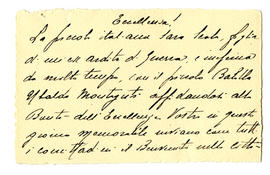 Eccellenza!
La piccola italiana Sara
di un ex ardito di Guerra, e inferma
da molto tempo, con il piccolo Balilla
Ubaldo affidandosi alla
Bontà dell'Eccellenza Vostra in questo
giorno memorabile come tutti
i il Benvenuto nella città